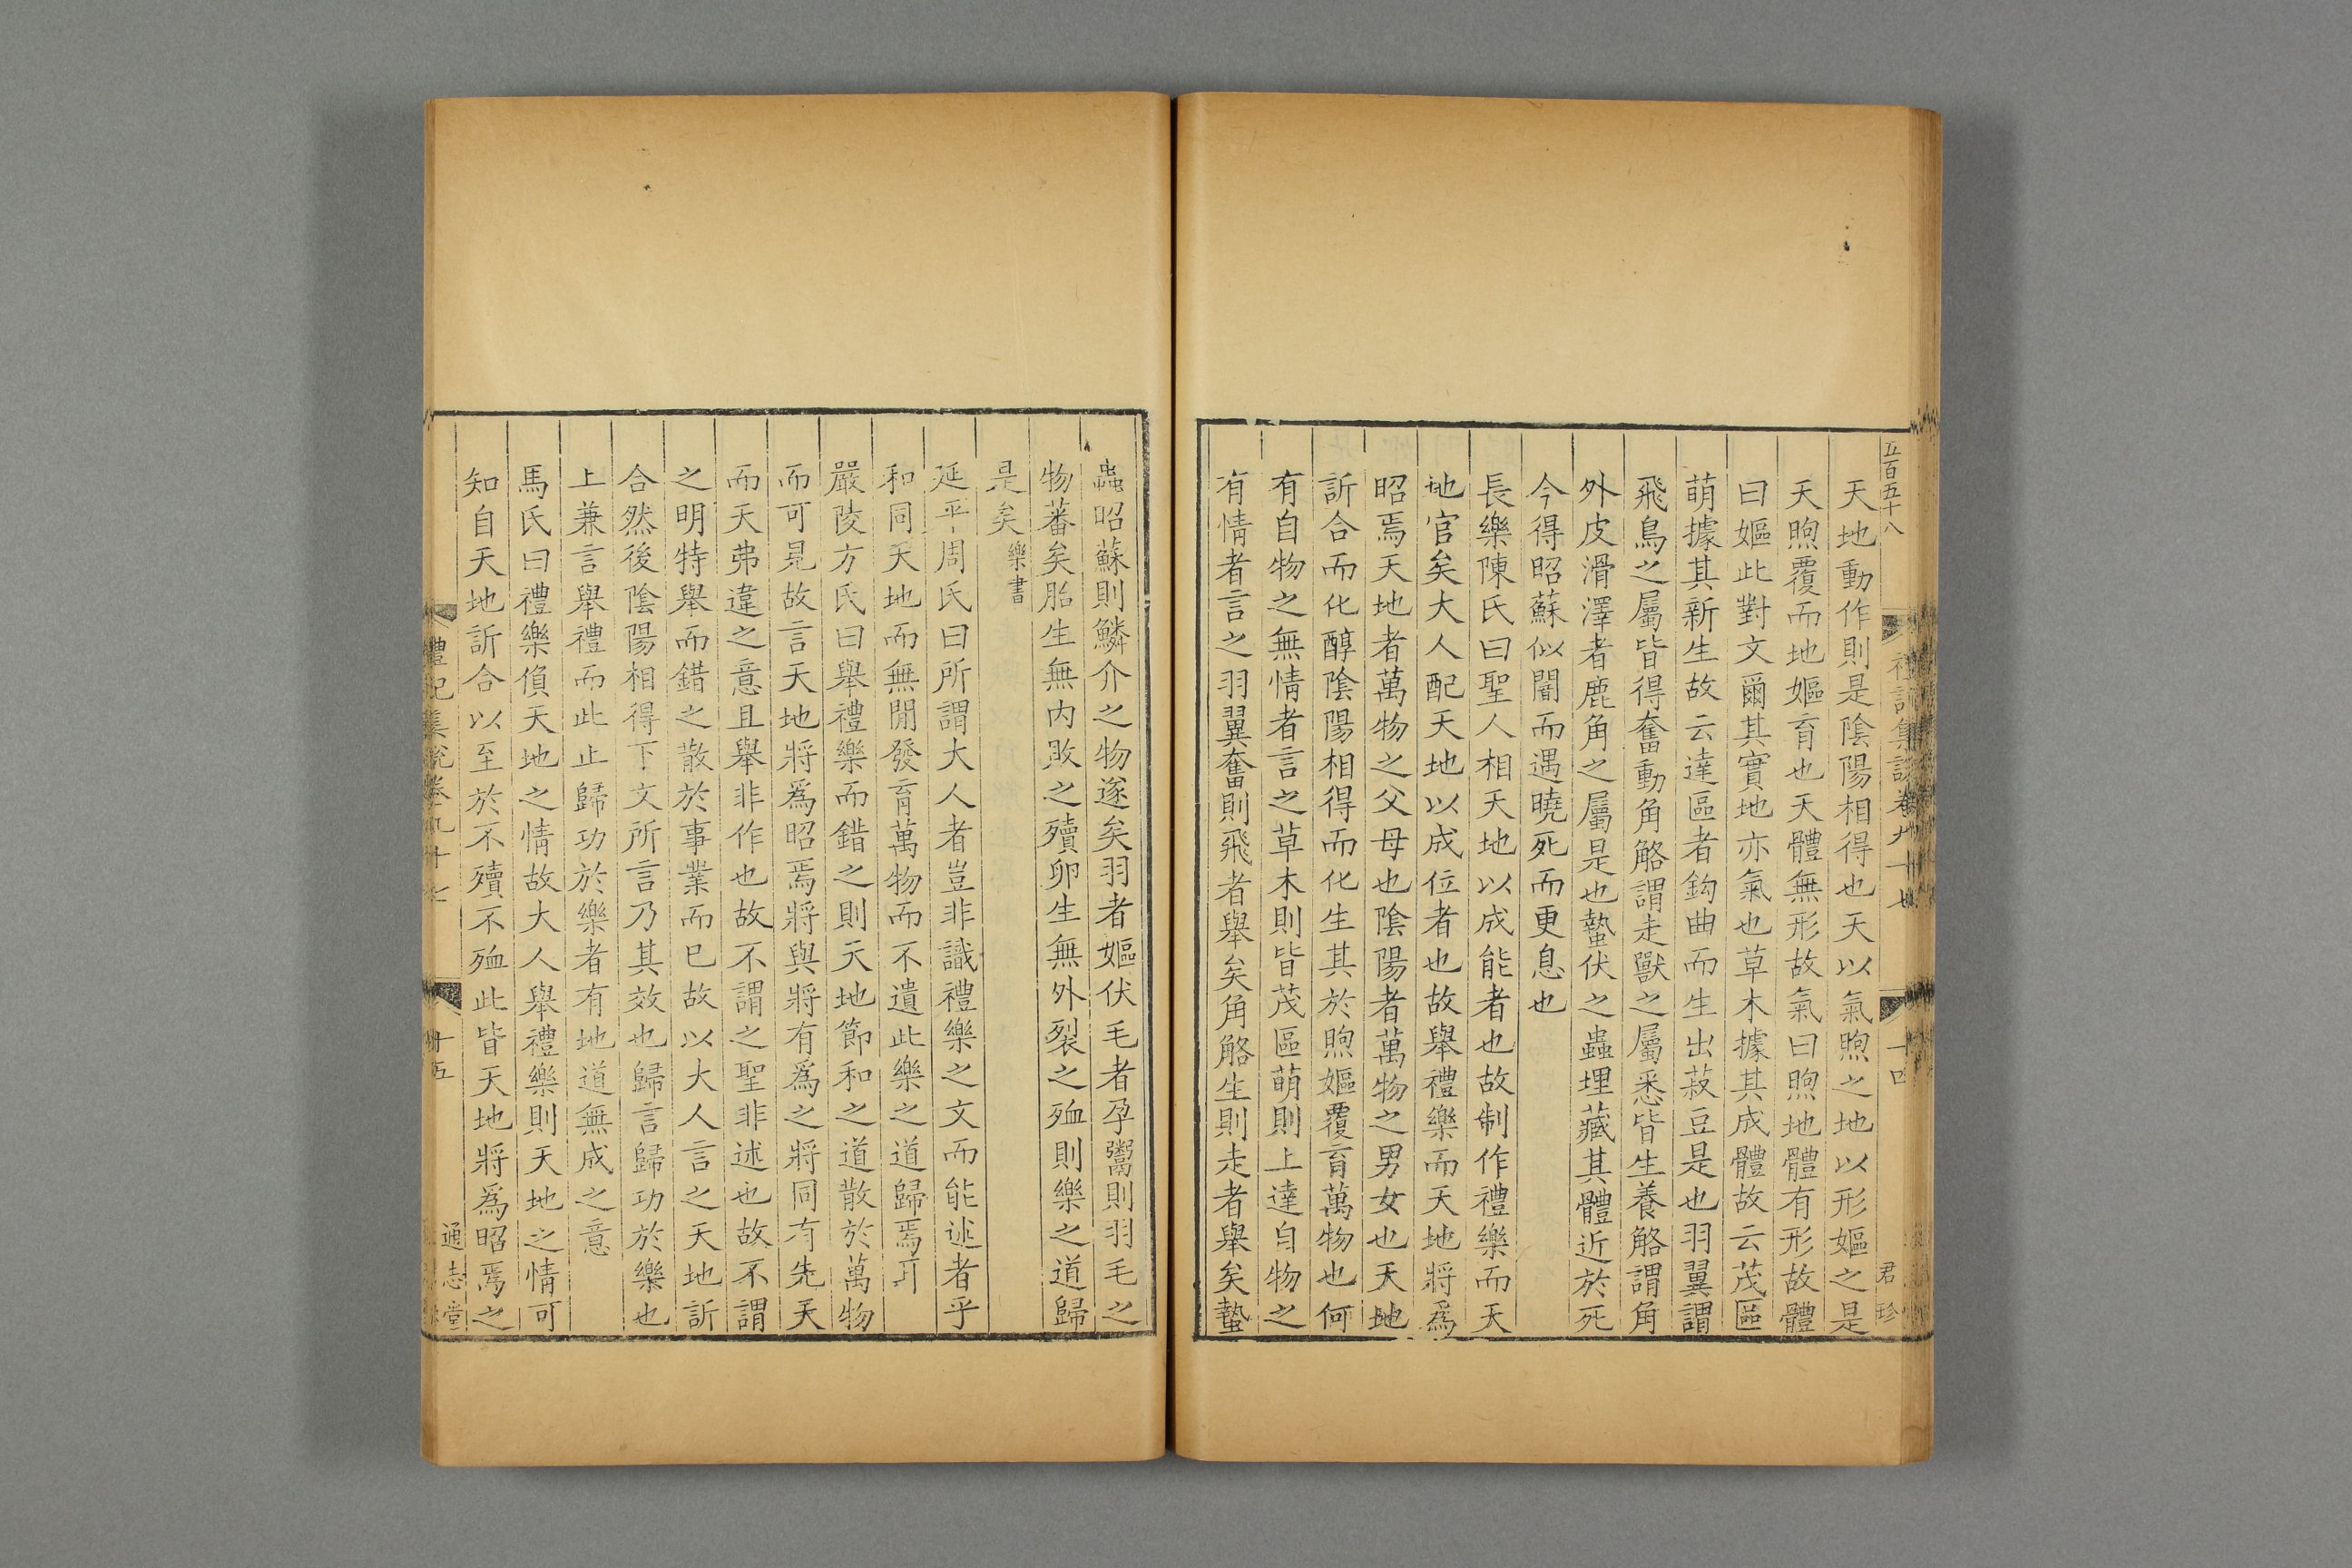 五百五十八
禮記集說卷九十七
十四
君珍
天地動作則是陰陽相得也天以氣煦之地以形嫗之是
天煦覆而地嫗育也天體無形故氣曰煦地體有形故體
曰嫗此對文爾其實地亦氣也草木據其成體故云茂區
萌據其新生故云達區者鈎曲而生出菽豆是也羽翼謂
飛鳥之屬皆得奮動角觡謂走獸之屬悉皆生養觡謂角
外皮滑澤者鹿角之屬是也蟄伏之蟲埋藏其體近於死
今得昭蘇似闇而遇曉死而更息也
長樂陳氏曰聖人相天地以成能者也故制作禮樂而天
地官矣大人配天地以成位者也故舉禮樂而天地將爲
昭焉天地者萬物之父母也陰陽者萬物之男女也天地
訢合而化醇陰陽相得而化生其於煦嫗覆育萬物也何
有自物之無情者言之草木則皆茂區萌則上達自物之
有情者言之羽翼奮則飛者舉矣角觡生則走者舉矣蟄
蟲昭蘇則鱗介之物遂矣羽者嫗伏毛者孕鬻則羽毛之
物蕃矣胎生無内敗之殰卵生無外裂之殈則樂之道歸
是矣樂書
延平周氏曰所謂大人者豈非識禮樂之文而能述者乎
和同天地而無閒發育萬物而不遺此樂之道歸焉耳
嚴陵方氏曰舉禮樂而錯之則天地節和之道散於萬物
而可見故言天地將爲昭焉將與將有爲之將同有先天
而天弗違之意且舉非作也故不謂之聖非述也故不謂
之明特舉而錯之散於事業而已故以大人言之天地訢
合然後陰陽相得下文所言乃其效也歸言歸功於樂也
上兼言舉禮而此止歸功於樂者有地道無成之意
馬氏曰禮樂偩天地之情故大人舉禮樂則天地之情可
知自天地訢合以至於不殰不殈此皆天地將爲昭焉之
禮記集說卷九十七
十五
通志堂